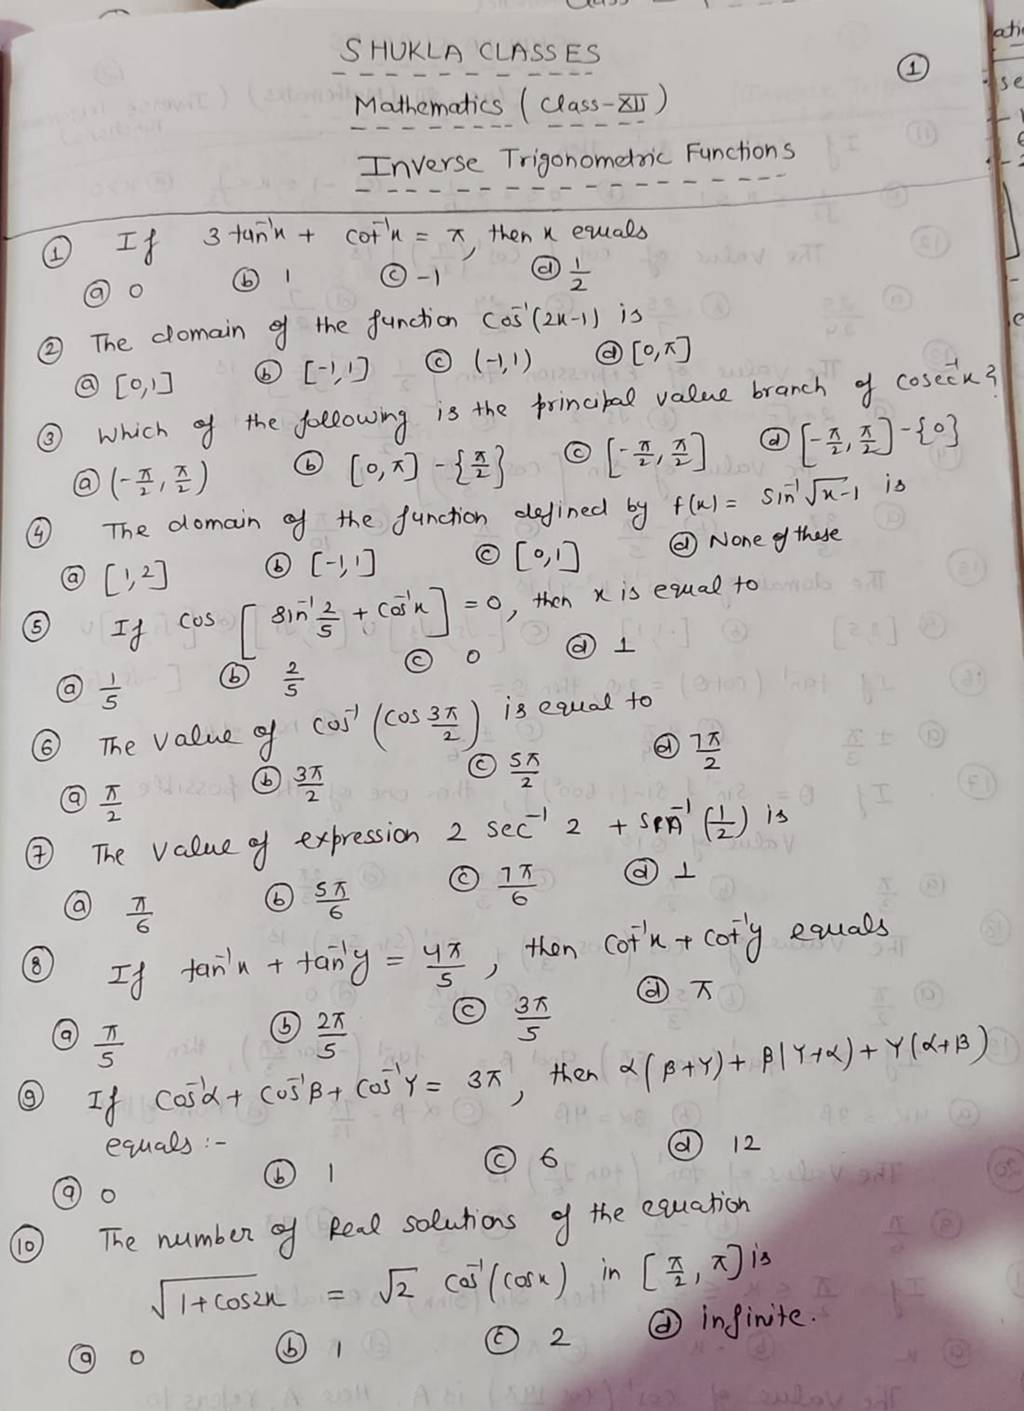 SHUKLA CLASSES
①
Mathematics (Class-XII)
Inverse Trigonometric Functions
① If 3 tan⁻¹x + cot⁻¹x = π, then x equals
ⓐ 0 ⓑ 1 ⓒ -1 ⓓ 1/2
② The domain of the function cos⁻¹(2x-1) is
ⓐ [0,1] ⓑ [-1,1] ⓒ (-1,1) ⓓ [0,π]
③ Which of the following is the principal value branch of cosec⁻¹x?
ⓐ (-π/2, π/2) ⓑ [0,π] - {π/2} ⓒ [-π/2, π/2] ⓓ [-π/2, π/2] - {0}
④ The domain of the function defined by f(x) = sin⁻¹√x-1 is
ⓐ [1,2] ⓑ [-1,1] ⓒ [0,1] ⓓ None of these
⑤ If cos [sin⁻¹ 2/5 + cos⁻¹x] = 0, then x is equal to
ⓐ 1/5 ⓑ 2/5 ⓒ 0 ⓓ 1
⑥ The value of cos⁻¹ (cos 3π/2) is equal to
ⓐ π/2 ⓑ 3π/2 ⓒ 5π/2 ⓓ 7π/2
⑦ The value of expression 2 sec⁻¹ 2 + sin⁻¹ (1/2) is
ⓐ π/6 ⓑ 5π/6 ⓒ 7π/6 ⓓ 1
⑧ If tan⁻¹x + tan⁻¹y = 4π/5, then cot⁻¹x + cot⁻¹y equals
ⓐ π/5 ⓑ 2π/5 ⓒ 3π/5 ⓓ π
⑨ If cos⁻¹α + cos⁻¹β + cos⁻¹γ = 3π, then α(β+γ) + β(γ+α) + γ(α+β)
equals :-
ⓐ 0 ⓑ 1 ⓒ 6 ⓓ 12
⑩ The number of Real solutions of the equation
√1+cos2x = √2 cos⁻¹(cosx) in [π/2, π] is
ⓐ 0 ⓑ 1 ⓒ 2 ⓓ infinite.